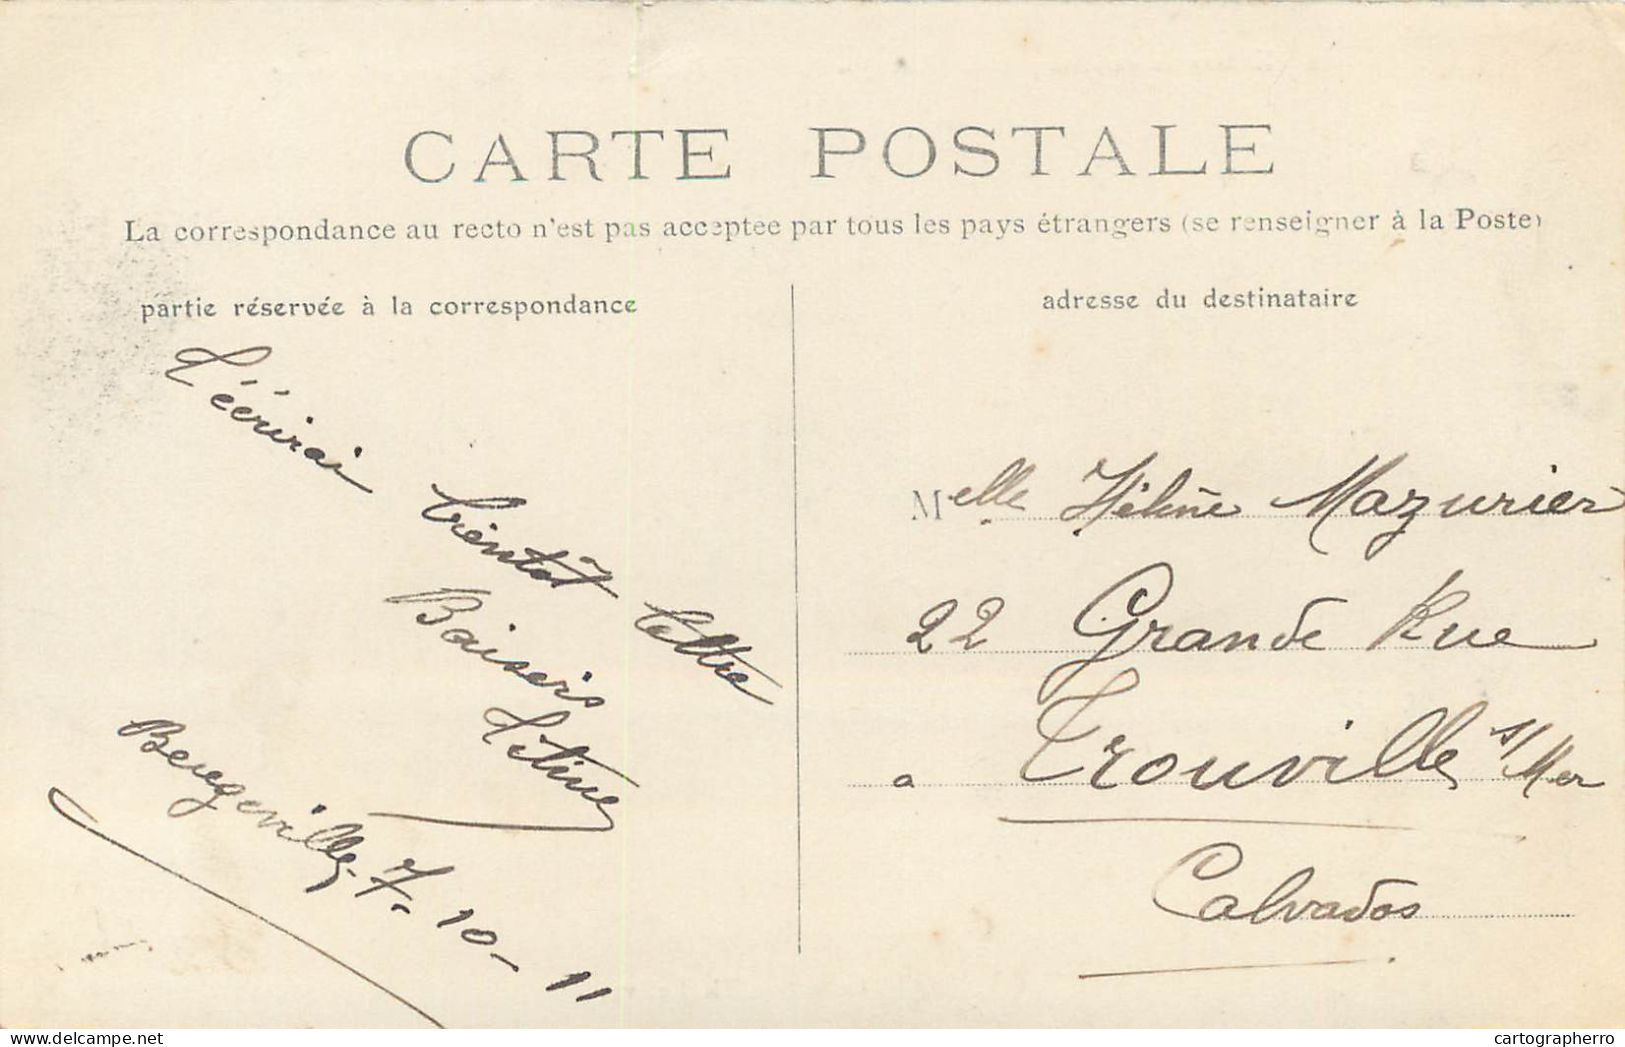 CARTE POSTALE
La correspondance au recto n'est pas acceptée par tous les pays étrangers (se renseigner à la Poste)
partie réservée à la correspondance
T'écrirai bientôt lettre
Baisers
Titine
7-10-11
adresse du destinataire
Melle Hélène Mazurier
22 Grande Rue
a Trouville s/Mer
Calvados
cartographerro